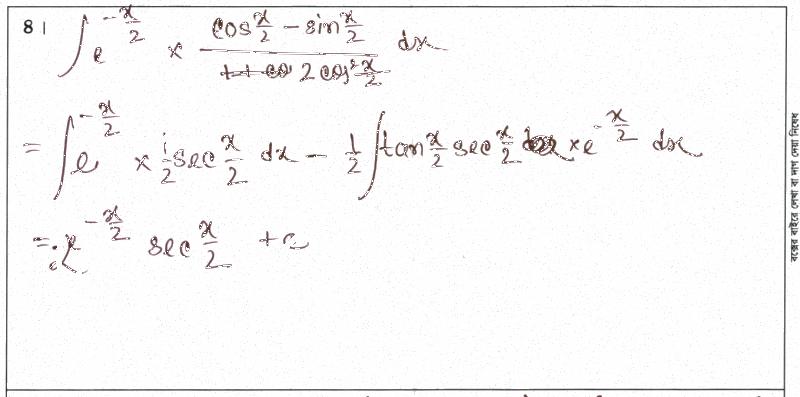 8।
∫ e^{-x/2} × (cos x/2 - sin x/2) / (2 cos² x/2) dx
= ∫ e^{-x/2} × 1/2 sec x/2 dx - 1/2 ∫ tan x/2 sec x/2 × e^{-x/2} dx
= e^{-x/2} sec x/2 + c
বক্সের বাইরে লেখা বা দাগ দেয়া নিষেধ